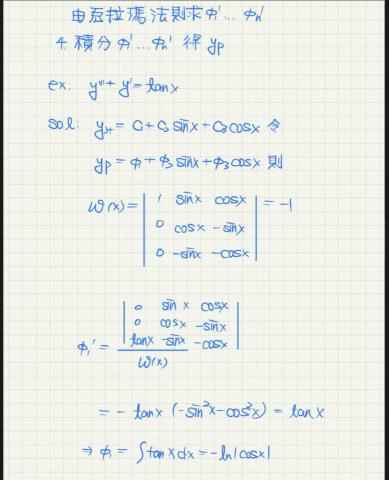 由克拉瑪法則求φ₁'...φₙ'
4. 積分φ₁'...φₙ' 得 yp
ex: y'''+y'=tanx
sol: yH=C₁+C₂sinx+C₃cosx 令
yp=φ₁+φ₂sinx+φ₃cosx 則
W(x)=| 1 sinx cosx | =-1
| 0 cosx -sinx |
| 0 -sinx -cosx |
| 0 sinx cosx |
| 0 cosx -sinx |
φ₁'= | tanx -sinx -cosx |
W(x)
=-tanx(-sin²x-cos²x)=tanx
⇒φ₁=∫tanxdx=-ln|cosx|